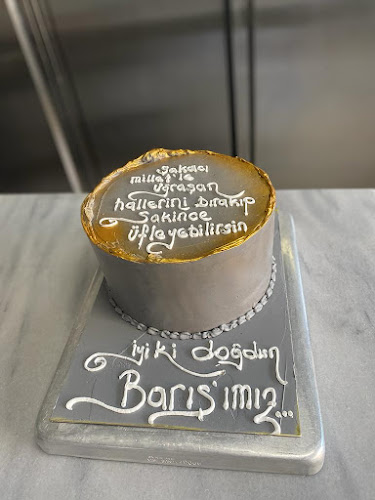 Şakacı
millet'le
uğraşan
hallerini bırakıp
Sakince
üfleyebilirsin
iyi ki doğdun
Barış'ımız...